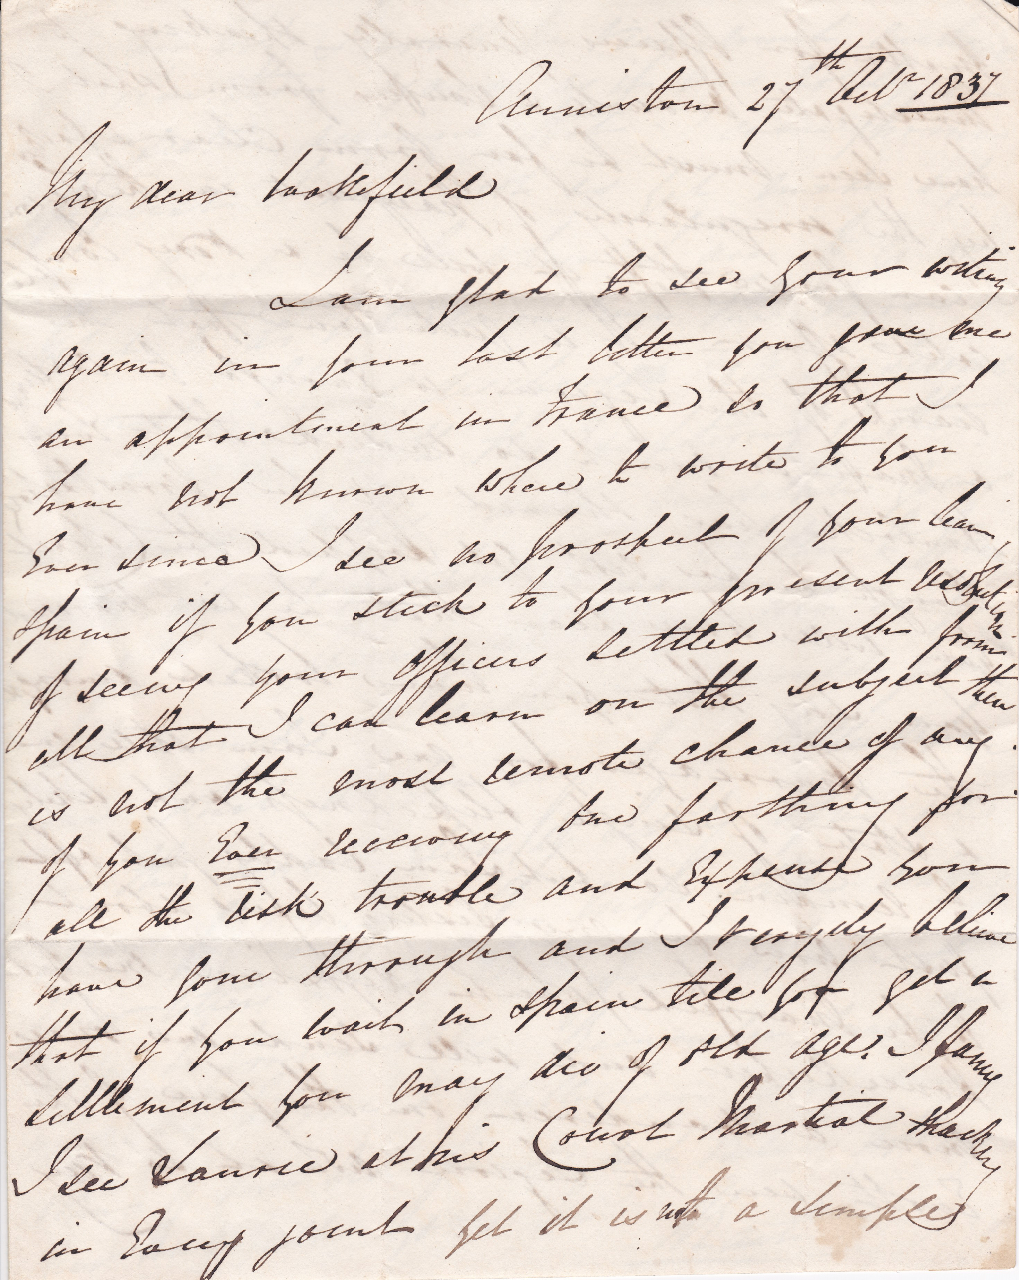 Anniston 27th Octr 1837
My dear Wakefield
I am glad to see your writing
again in your last letter you gave me
an appointment in France so that I
have not known where to write to you
Ever since I see no prospect of your leavg
Spain if you stick to your present resolution
of seeing your officers settled with from
all that I can learn on the subject there
is not the most remote chance of any
of you Ever receiving one farthing for
all the risk trouble and Expense you
have gone through and I verily believe
that if you wait in Spain till you get a
settlement you may die of old age. I fancy
I see Laurie at his Court Martial shaking
in Every joint yet it is not a simple